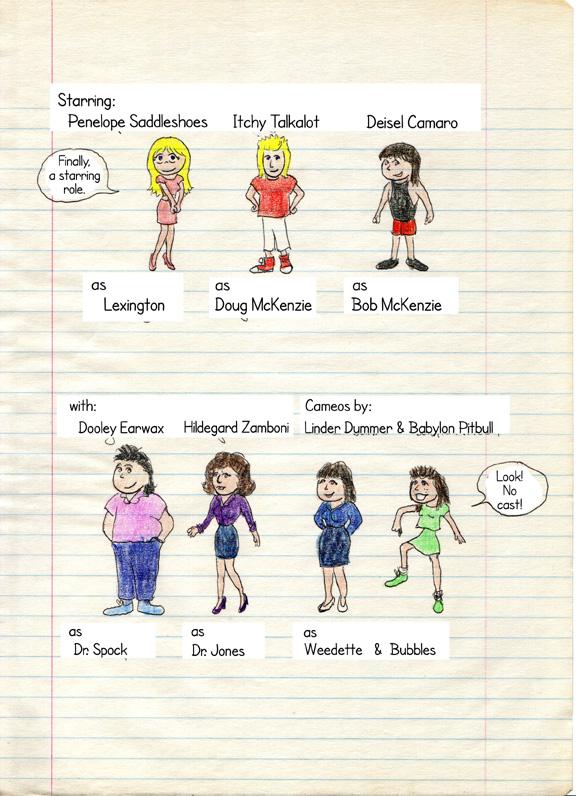 Starring:
Penelope Saddleshoes Itchy Talkalot Deisel Camaro
Finally,
a starring
role.
as as as
Lexington Doug McKenzie Bob McKenzie
with: Cameos by:
Dooley Earwax Hildegard Zamboni Linder Dummer & Babylon Pitbull
Look!
No
cast!
as as as
Dr. Spock Dr. Jones Weedette & Bubbles